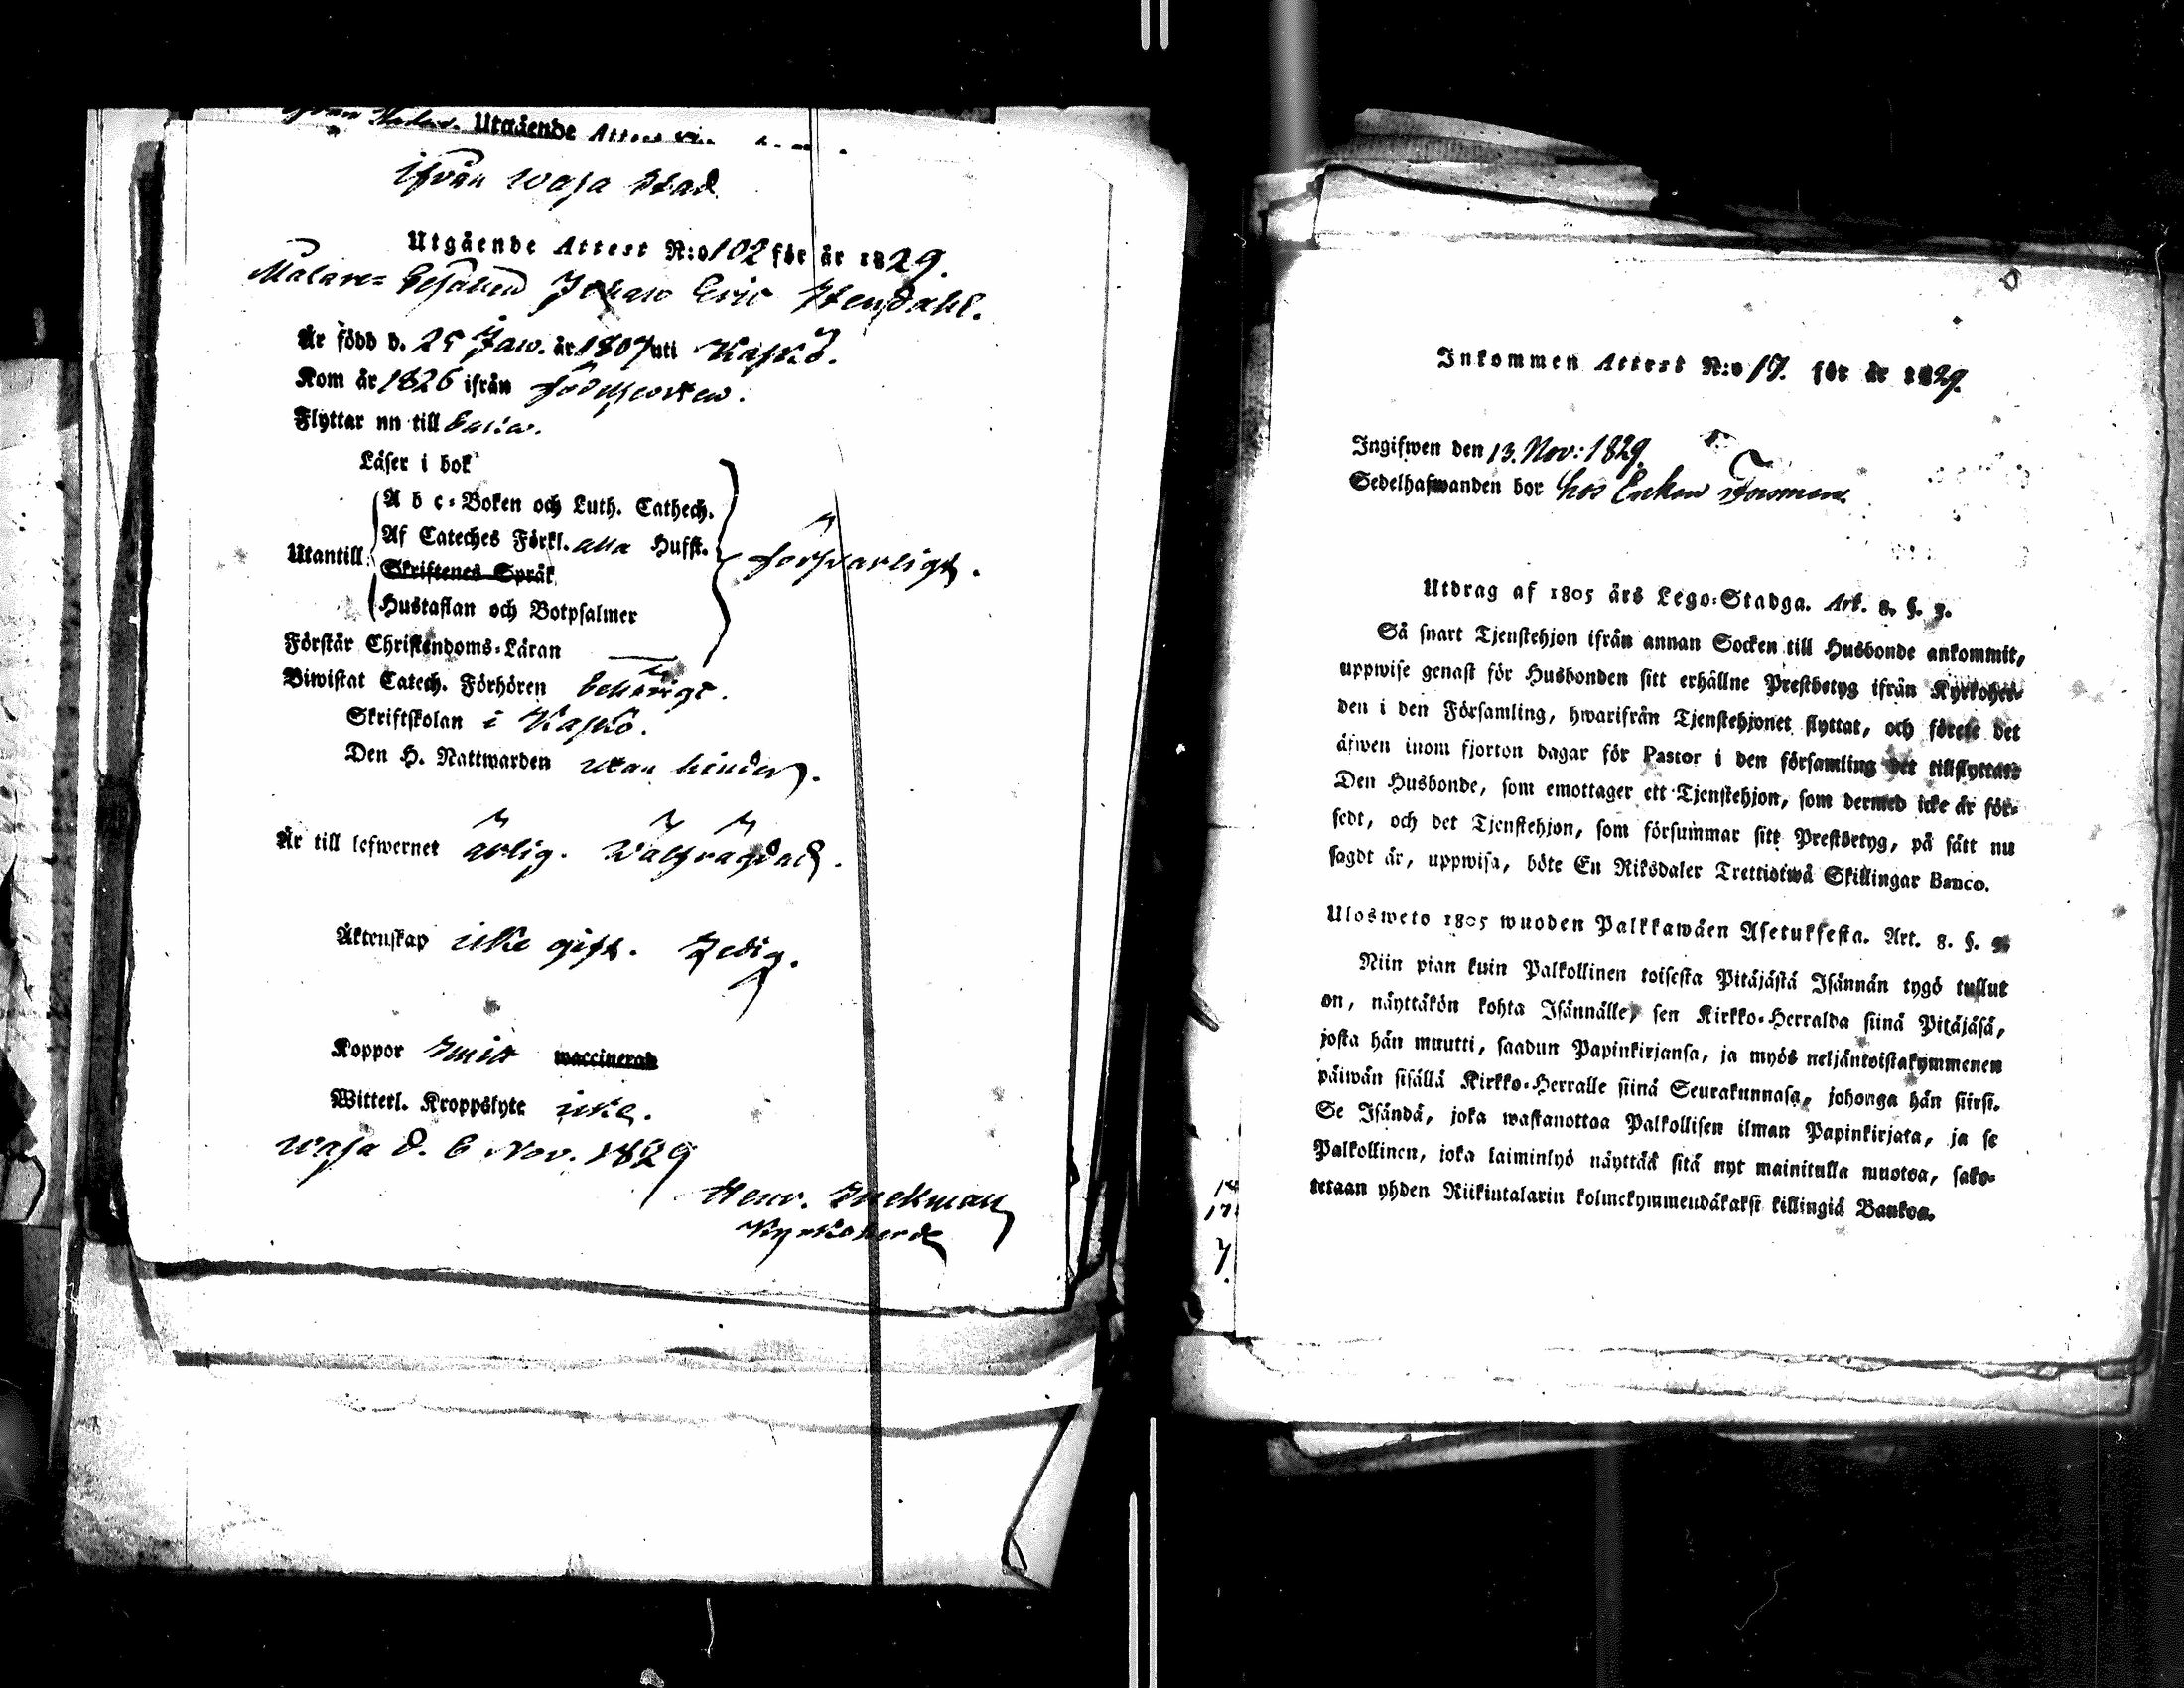 Utgående Attest
ifrån Wasa Stad
Utgående Attest N:o 102 för år 1829.
Målare-Gesällen Johan Eric Stendahl.
Är född d. 25 Jan. år 1807 uti Kaskö.
Kom år 1826 ifrån födelseorten.
Flyttar nu till
Läser i bok
A b c-Boken och Luth. Cathech.
Utantill Af Cateches Förkl. alla Hufst. försvarligt.
Skriftenes Språk
Hustaflan och Botpsalmer
Förstår Christendoms-Läran
Biwistat Catech. Förhören behörigt.
Skriftskolan i Kaskö.
Den H. Nattwarden utan hinder.
Är till lefwernet ärlig. Wälfrägdad.
Äktenskap icke gift. Ledig.
Koppor haft waccinerad
Witterl. Kroppslyte icke.
Wasa d. 6 Nov. 1829
Henr. Backman
Kyrkoherde
Inkommen Attest N:o 17. för år 1829.
Ingifwen den 13. Nov: 1829.
Sedelhafwanden bor hos Enkan Forsman.
Utdrag af 1805 års Lego-Stadga. Art. 8. §. 9.
Så snart Tjenstehjon ifrån annan Socken till Husbonde ankommit,
uppwise genast för Husbonden sitt erhållne Prestbetyg ifrån Kyrkoher-
den i den Församling, hwarifrån Tjenstehjonet flyttat, och förete det
äfwen inom fjorton dagar för Pastor i den församling det tillflyttat:
Den Husbonde, som emottager ett Tjenstehjon, som dermed icke är för-
sedt, och det Tjenstehjon, som försummar sitt Prestbetyg, på sätt nu
sagdt är, uppwisa, böte En Riksdaler Trettiotwå Skillingar Banco.
Ulosweto 1805 wuoden Palkkawäen Asetuksesta. Art. 8. §. 9.
Niin pian kuin Palkollinen toisesta Pitäjästä Isännän tygö tullut
on, näyttäkön kohta Isännälle, sen Kirkko-Herralda siinä Pitäjäsä,
josta hän muutti, saadun Papinkirjansa, ja myös neljäntoistakymmenen
päiwän sisällä Kirkko-Herralle siinä Seurakunnasa, johonga hän siirsi.
Se Isändä, joka wastanottaa Palkollisen ilman Papinkirjata, ja se
Palkollinen, joka laiminlyö näyttää sitä nyt mainitulla muotoa, sako-
tetaan yhden Riikintalarin kolmekymmendäkaksi killingiä Bankoa.